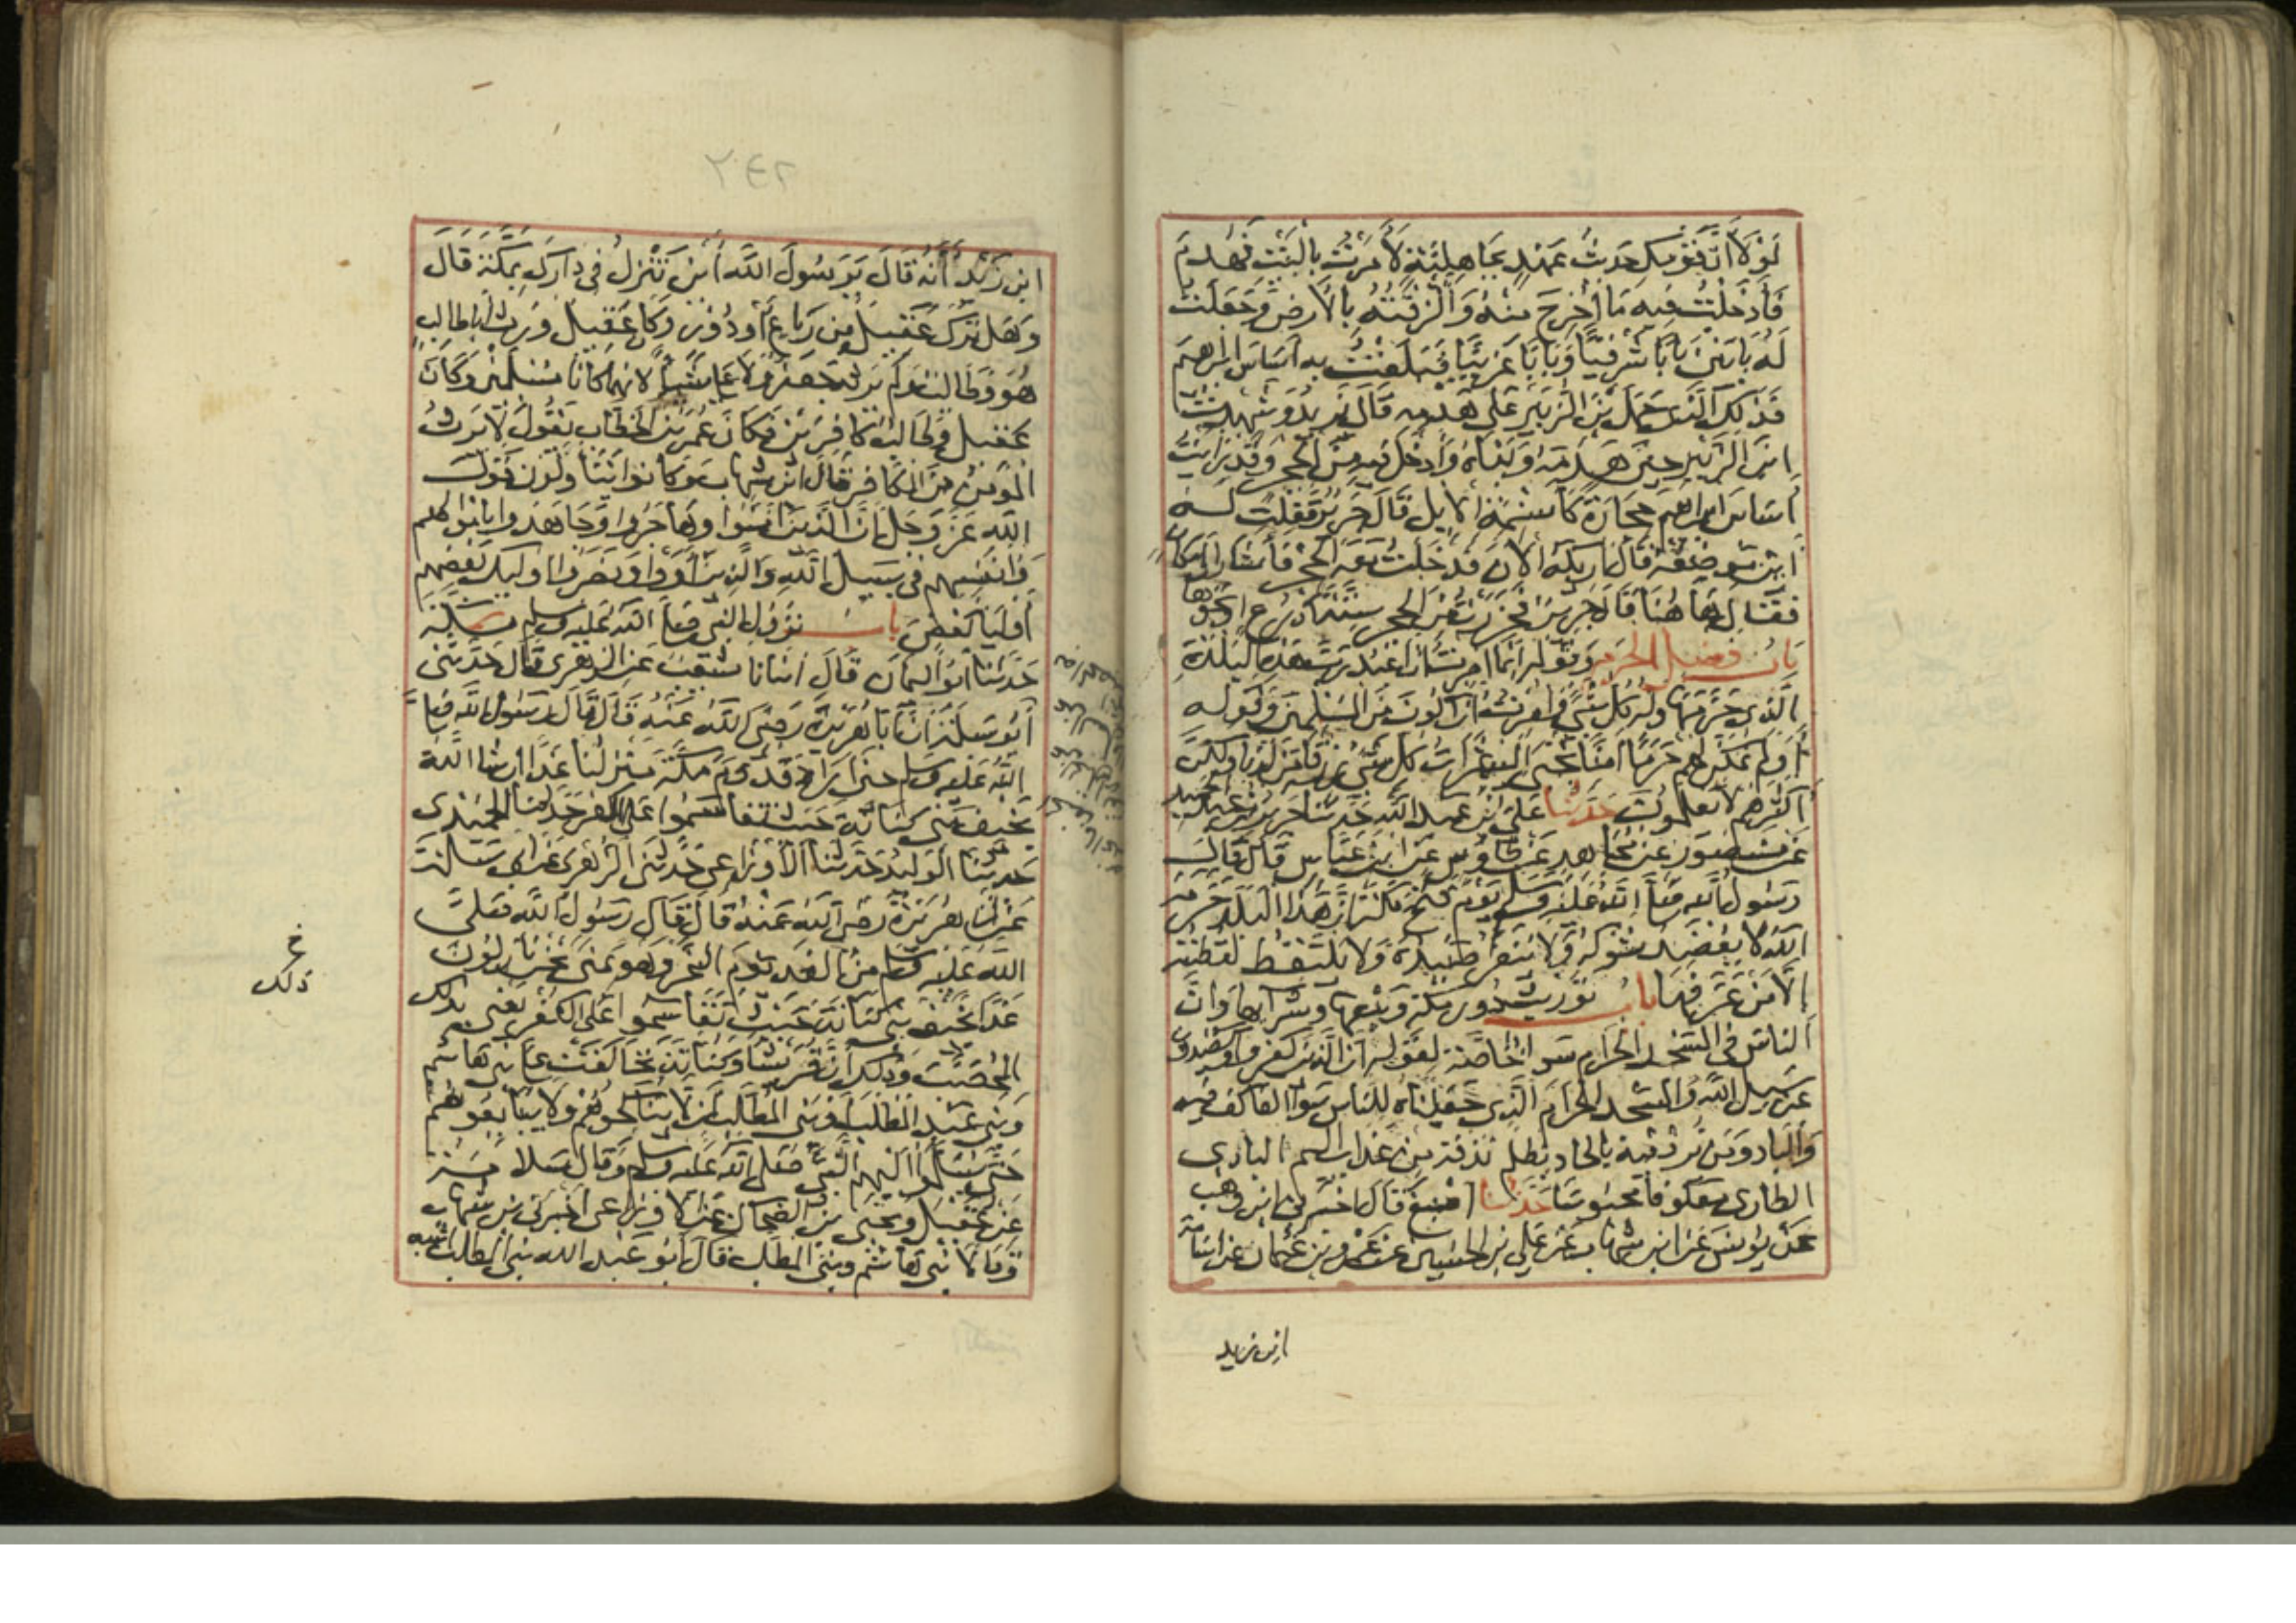 لَوْلَا أَنَّ قَوْمَكِ حَدِيثُ عَهْدٍ بِجَاهِلِيَّةٍ لَأَمَرْتُ بِالْبَيْتِ فَهُدِمَ
فَأَدْخَلْتُ فِيهِ مَا أُخْرِجَ مِنْهُ وَأَلْزَقْتُهُ بِالْأَرْضِ وَجَعَلْتُ
لَهُ بَابَيْنِ بَابًا شَرْقِيًّا وَبَابًا غَرْبِيًّا فَبَلَغْتُ بِهِ أَسَاسَ ابْرَاهِيمَ
فَذَلِكَ الَّذِي حَمَلَ بْنَ الزُّبَيْرِ عَلَى هَدْمِهِ قَالَ يَزِيدُ وَشَهِدْتُ
ابْنَ الزُّبَيْرِ حِينَ هَدَمَهُ وَبَنَاهُ وَأَدْخَلَ فِيهِ مِنَ الْحِجْرِ وَقَدْ رَأَيْتُ
أَسَاسَ إِبْرَاهِيمَ حِجَارَةً كَأَسْنِمَةِ الْإِبِلِ قَالَ جَرِيرٌ فَقُلْتُ لَهُ
أَيْنَ مَوْضِعُهُ قَالَ أُرِيكَهُ الْآنَ فَدَخَلْتُ مَعَهُ الْحِجْرَ فَأَشَارَ إِلَى مَكَانٍ
فَقَالَ هَا هُنَا قَالَ جَرِيرٌ فَحَزَرْتُ مِنَ الْحِجْرِ سِتَّةَ أَذْرُعٍ أَوْ نَحْوَهَا
بَابُ فَضْلِ الْحَرَمِ وَقَوْلِهِ إِنَّمَا أُمِرْتُ أَنْ أَعْبُدَ رَبَّ هَذِهِ الْبَلْدَةِ
الَّذِي حَرَّمَهَا وَلَهُ كُلُّ شَيْءٍ وَأُمِرْتُ أَنْ أَكُونَ مِنَ الْمُسْلِمِينَ وَقَوْلِهِ
أَوَلَمْ نُمَكِّنْ لَهُمْ حَرَمًا آمِنًا يُجْبَى إِلَيْهِ ثَمَرَاتُ كُلِّ شَيْءٍ رِزْقًا مِنْ لَدُنَّا وَلَكِنَّ
أَكْثَرَهُمْ لَا يَعْلَمُونَ حَدَّثَنَا عَلِيُّ ابْنُ عَبْدِ اللَّهِ حَدَّثَنَا جَرِيرُ بْنُ عَبْدِ الْحَمِيدِ
عَنْ مَنْصُورٍ عَنْ مُجَاهِدٍ عَنْ طَاوُسٍ عَنِ ابْنِ عَبَّاسٍ قَالَ قَالَ
رَسُولُ اللَّهِ صَلَّى اللَّهُ عَلَيْهِ وَسَلَّمَ يَوْمَ فَتْحِ مَكَّةَ إِنَّ هَذَا الْبَلَدَ حَرَّمَهُ
اللَّهُ لَا يُعْضَدُ شَوْكُهُ وَلَا يُنَفَّرُ صَيْدُهُ وَلَا يَلْتَقِطُ لُقَطَتَهُ
إِلَّا مَنْ عَرَّفَهَا بَابُ تَوْرِيثِ دُورِ مَكَّةَ وَبَيْعِهَا وَشِرَائِهَا وَأَنَّ
النَّاسَ فِي الْمَسْجِدِ الْحَرَامِ سَوَاءٌ خَاصَّةً لِقَوْلِهِ إِنَّ الَّذِينَ كَفَرُوا وَيَصُدُّونَ
عَنْ سَبِيلِ اللَّهِ وَالْمَسْجِدِ الْحَرَامِ الَّذِي جَعَلْنَاهُ لِلنَّاسِ سَوَاءً الْعَاكِفُ فِيهِ
وَالْبَادِ وَمَنْ يُرِدْ فِيهِ بِإِلْحَادٍ بِظُلْمٍ نُذِقْهُ مِنْ عَذَابٍ أَلِيمٍ الْبَادِي
الطَّارِي مَعْكُوفًا مَحْبُوسًا حَدَّثَنَا أَصْبَغُ قَالَ أَخْبَرَنِي ابْنُ وَهْبٍ
عَنْ يُونُسَ عَنِ ابْنِ شِهَابٍ عَنْ عَلِيِّ بْنِ الْحُسَيْنِ عَنْ عَمْرِو بْنِ عُثْمَانَ عَنْ أُسَامَةَ
ابن زيد
٢٤٢
ابْنِ زَيْدٍ أَنَّهُ قَالَ يَا رَسُولَ اللَّهِ أَيْنَ تَنْزِلُ فِي دَارِكَ بِمَكَّةَ قَالَ
وَهَلْ تَرَكَ عَقِيلٌ مِنْ رِبَاعٍ أَوْ دُورٍ وَكَانَ عَقِيلٌ وَرِثَ أَبَا طَالِبٍ
هُوَ وَطَالِبٌ وَلَمْ يَرِثْهُ جَعْفَرٌ وَلَا عَلِيٌّ شَيْئًا لِأَنَّهُمَا كَانَا مُسْلِمَيْنِ وَكَانَ
عَقِيلٌ وَطَالِبٌ كَافِرَيْنِ فَكَانَ عُمَرُ بْنُ الْخَطَّابِ يَقُولُ لَا يَرِثُ
الْمُؤْمِنُ مِنَ الْكَافِرِ قَالَ ابْنُ شِهَابٍ وَكَانُوا يَتَأَوَّلُونَ قَوْلَ
اللَّهِ عَزَّ وَجَلَّ إِنَّ الَّذِينَ آمَنُوا وَهَاجَرُوا وَجَاهَدُوا بِأَمْوَالِهِمْ
وَأَنْفُسِهِمْ فِي سَبِيلِ اللَّهِ وَالَّذِينَ آوَوْا وَنَصَرُوا أُولَئِكَ بَعْضُهُمْ
أَوْلِيَاءُ بَعْضٍ بَابُ نُزُولِ النَّبِيِّ صَلَّى اللَّهُ عَلَيْهِ وَسَلَّمَ مَكَّةَ
حَدَّثَنَا أَبُو الْيَمَانِ قَالَ أَنْبَانَا شُعَيْبٌ عَنِ الزُّهْرِيِّ قَالَ حَدَّثَنِي
أَبُو سَلَمَةَ أَنَّ أَبَا هُرَيْرَةَ رَضِيَ اللَّهُ عَنْهُ قَالَ قَالَ رَسُولُ اللَّهِ صَلَّى
اللَّهُ عَلَيْهِ وَسَلَّمَ حِينَ أَرَادَ قُدُومَ مَكَّةَ مَنْزِلُنَا غَدًا إِنْ شَاءَ اللَّهُ
بِخَيْفِ بَنِي كِنَانَةَ حَيْثُ تَقَاسَمُوا عَلَى الْكُفْرِ حَدَّثَنَا الْحُمَيْدِيُّ
حَدَّثَنَا الْوَلِيدُ حَدَّثَنَا الْأَوْزَاعِيُّ حَدَّثَنِي الزُّهْرِيُّ عَنْ أَبِي سَلَمَةَ
عَنْ أَبِي هُرَيْرَةَ رَضِيَ اللَّهُ عَنْهُ قَالَ قَالَ رَسُولُ اللَّهِ صَلَّى
اللَّهُ عَلَيْهِ وَسَلَّمَ مِنَ الْغَدِ يَوْمَ النَّحْرِ وَهُوَ بِمِنًى نَحْنُ نَازِلُونَ
غَدًا بِخَيْفِ بَنِي كِنَانَةَ حَيْثُ تَقَاسَمُوا عَلَى الْكُفْرِ يَعْنِي بِذَلِكَ
الْمُحَصَّبَ وَذَلِكَ أَنَّ قُرَيْشًا وَكِنَانَةَ تَحَالَفَتْ عَلَى بَنِي هَاشِمٍ
وَبَنِي عَبْدِ الْمُطَّلِبِ أَوْ بَنِي الْمُطَّلِبِ أَنْ لَا يُنَاكِحُوهُمْ وَلَا يُبَايِعُوهُمْ
حَتَّى يُسْلِمُوا إِلَيْهِمُ النَّبِيَّ صَلَّى اللَّهُ عَلَيْهِ وَسَلَّمَ وَقَالَ سَلَامَةُ
عَنْ عُقَيْلٍ وَيَحْيَى بْنُ الضَّحَّاكِ عَنِ الْأَوْزَاعِيِّ أَخْبَرَنِي بْنُ شِهَابٍ
وَقَالَا بَنِي هَاشِمٍ وَبَنِي الْمُطَّلِبِ قَالَ أَبُو عَبْدِ اللَّهِ بَنِي الْمُطَّلِبِ أَشْبَهُ
خ
ذلك